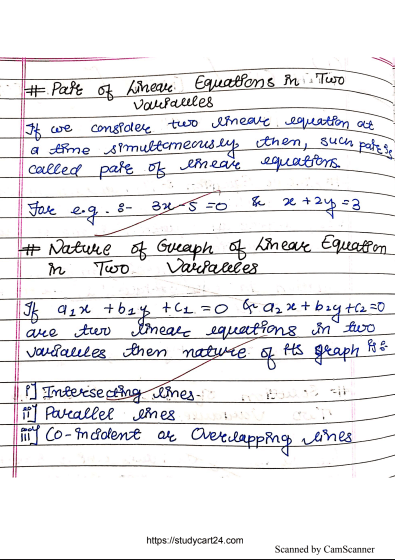 # Pair of Linear Equations in Two
Variables
If we consider two linear equation at
a time simultaneously then, such pair is
called pair of linear equations.
For e.g. :- 3x - 5 = 0 & x + 2y = 3
# Nature of Graph of Linear Equation
in Two Variables
If a₁x + b₁y + c₁ = 0 & a₂x + b₂y + c₂ = 0
are two linear equations in two
variables then nature of its graph is :-
i] Intersecting lines.
ii] Parallel lines
iii] Co-incident or Overlapping lines
https://studycart24.com
Scanned by CamScanner